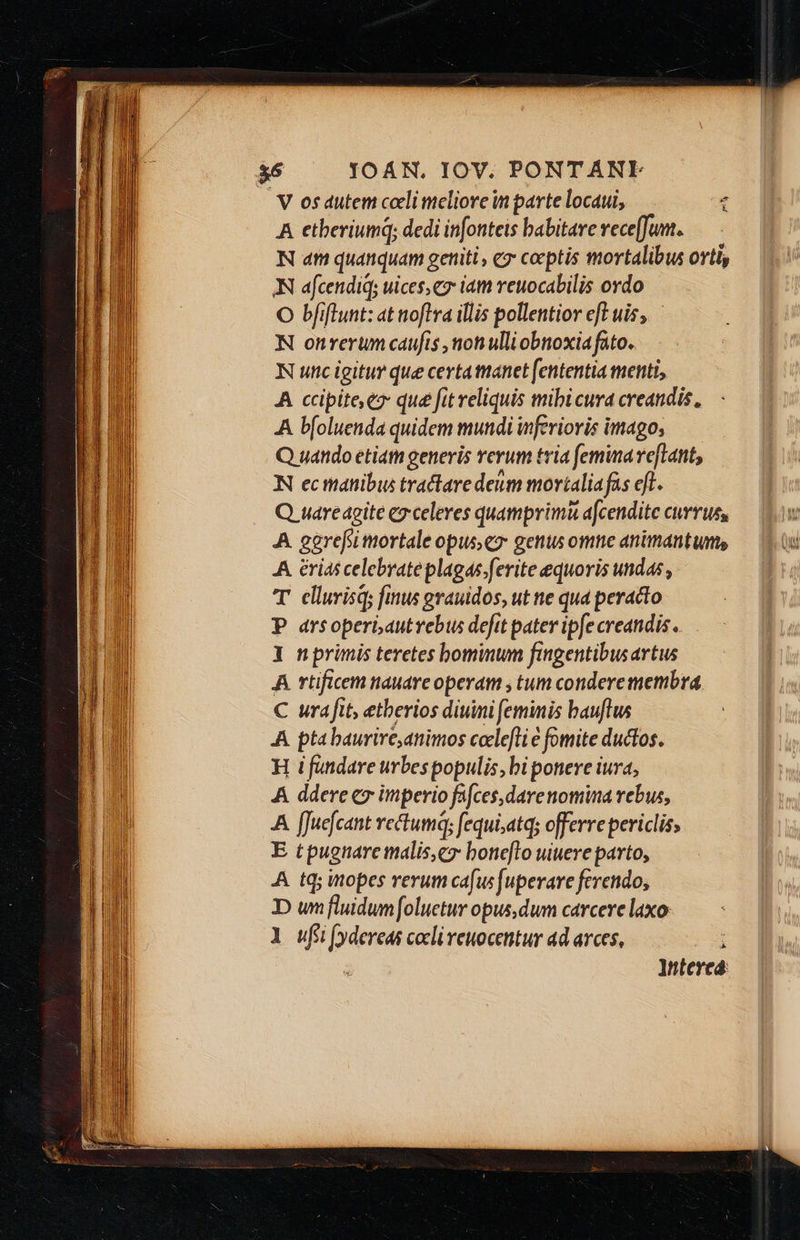 36 IOAN. IOV. PONTANI
V os autem cœli meliore in parte locaui,
A etheriumq; dedi inſonteis habitare receſſum.
N am quanquam geniti, & cœptis mortalibus orti,
N aſcendiq; uices, & iam reuocabilis ordo
O bſiſtunt: at noſtra illis pollentior eſt uis,
N on rerum cauſis, non ulli obnoxia fato.
N unc igitur quæ certa manet ſententia menti,
A ccipite, & quæ ſit reliquis mihi cura creandis.
A bſoluenda quidem mundi inferioris imago,
Q uando etiam generis rerum tria ſemina reſtant,
N ec manibus tractare deûm mortalia fas eſt.
Q uare agite & celeres quamprimũ aſcendite currus,
A ggreſsi mortale opus, & genus omne animantum,
A ërias celebrate plagas, ferite æquoris undas,
T ellurisq; ſinus grauidos, ut ne qua peracto
P ars operi, aut rebus deſit pater ipſe creandis.
I n primis teretes hominum fingentibus artus
A rtificem nauare operam, tum condere membra
C ura ſit, ætherios diuini ſeminis hauſtus
A pta haurire, animos cœleſti è fomite ductos.
H i fundare urbes populis, hi ponere iura,
A ddere & imperio faſces, dare nomina rebus,
A ſſueſcant rectumq; ſequi, atq; offerre periclis,
E t pugnare malis, & honeſto uiuere parto,
A tq; inopes rerum caſus ſuperare ferendo,
D um fluidum ſoluetur opus, dum carcere laxo
I uſsi ſydereas cœli reuocentur ad arces,
Interea